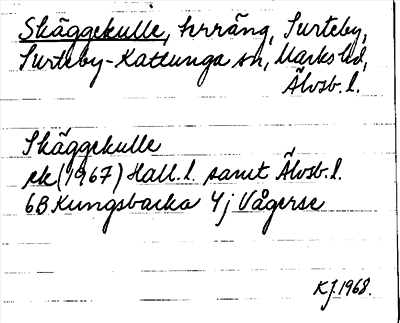 Skäggekulle, terräng, Surteby,
Surteby-Kattunga sn, Marks hd,
Älvsb. l.
Skäggekulle
ek (1967) Hall. l. samt Älvsb. l.
6B Kungsbacka 4j Vågerse
KJ. 1968.